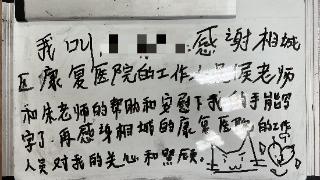 我叫 感谢相城
区康复医院的工作人员侯老师
和朱老师的帮助和安慰下我的手能写
字了.再感谢相城的康复医院的工作
人员对我的关心和照顾.